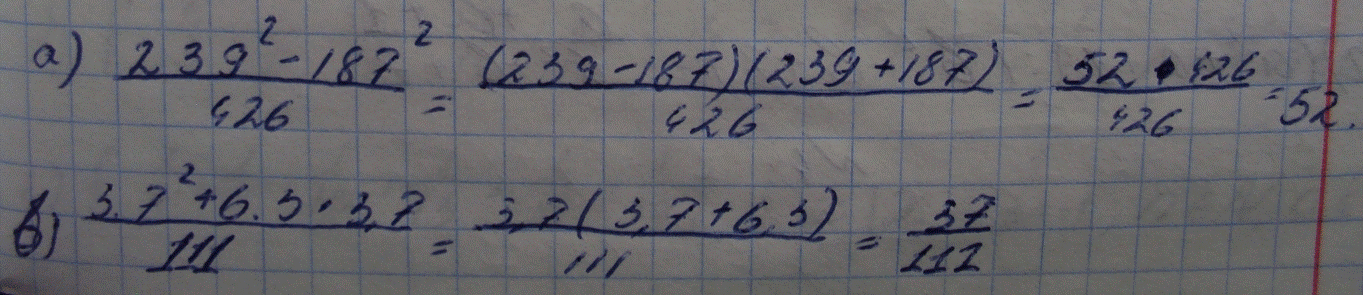 а) (239² - 187²)/426 = ((239 - 187)(239 + 187))/426 = (52 • 426)/426 = 52.
б) (3,7² + 6,3 · 3,7)/111 = (3,7(3,7 + 6,3))/111 = 37/111